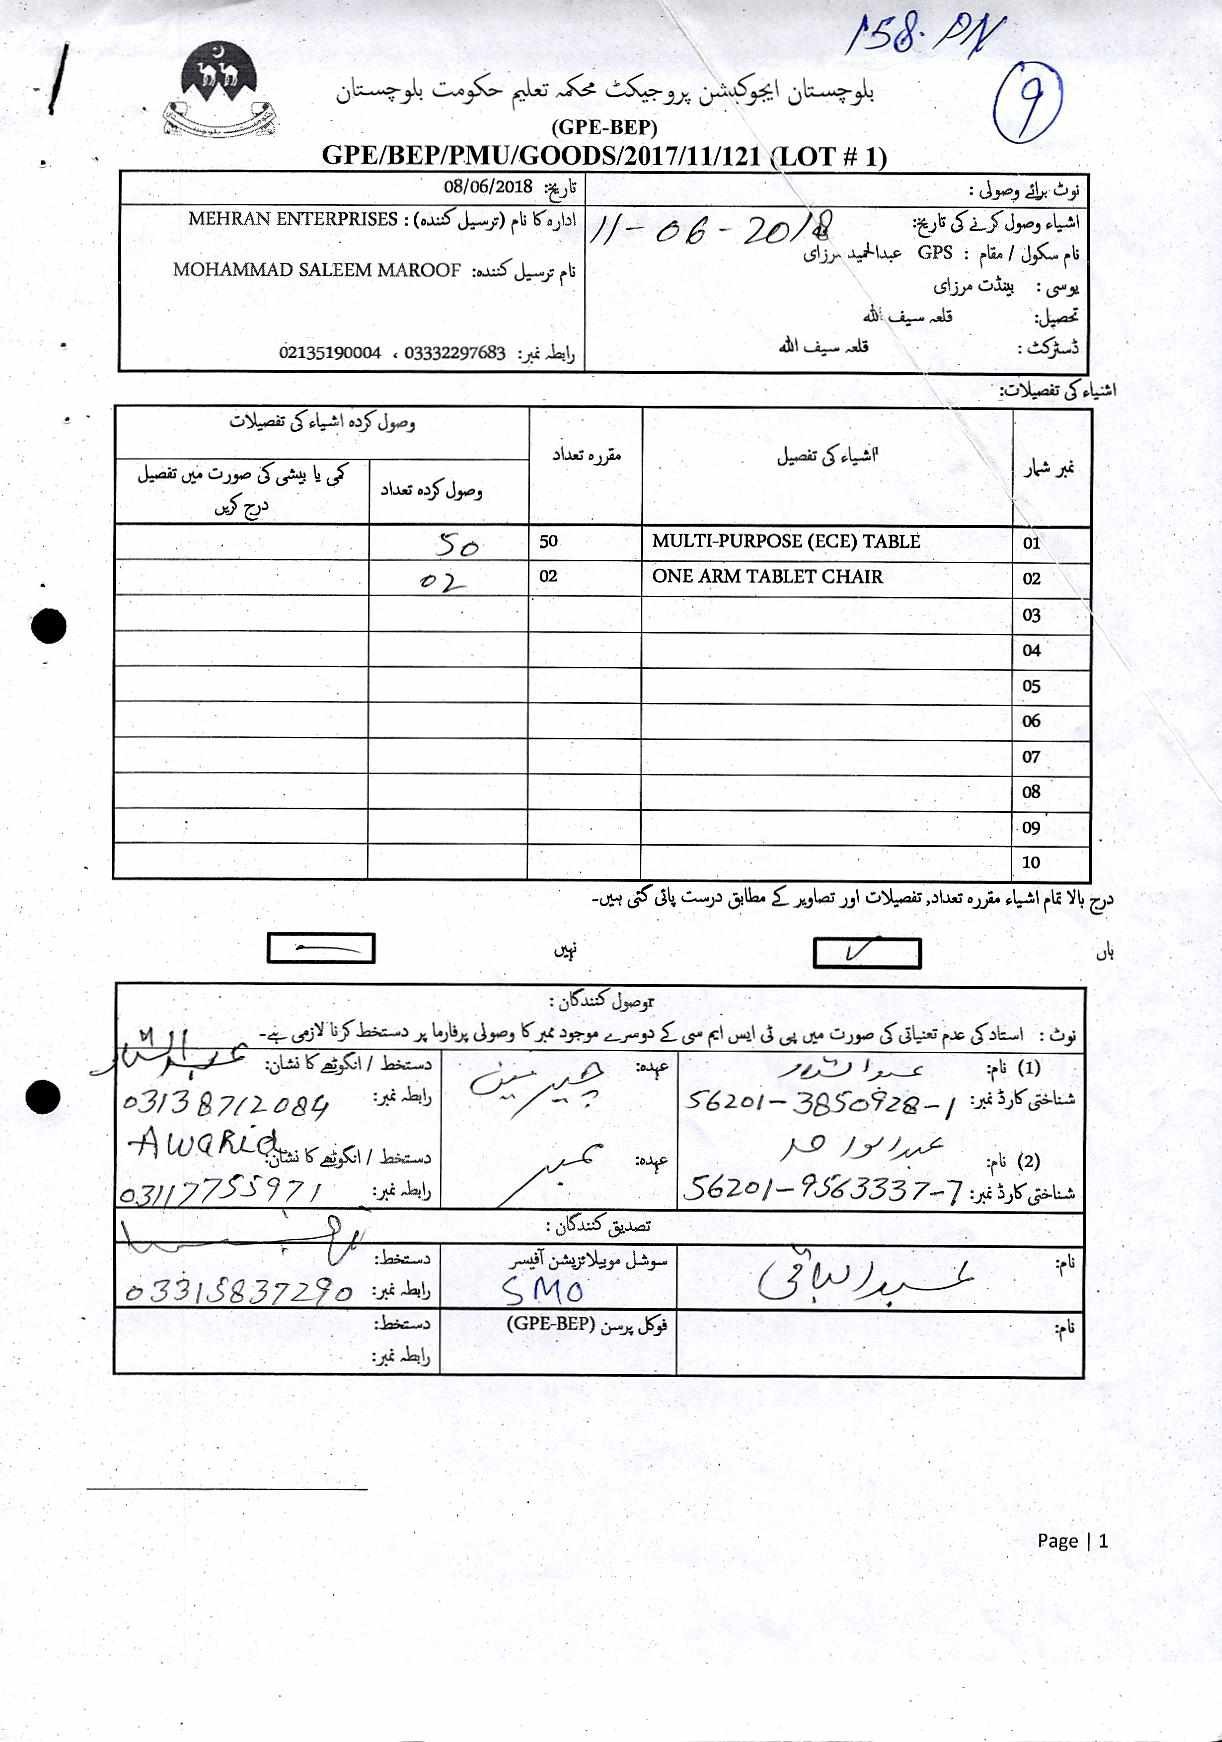 158-PN
9
بلوچستان ایجوکیشن پروجیکٹ محکمہ تعلیم حکومت بلوچستان
(GPE-BEP)
GPE/BEP/PMU/GOODS/2017/11/121 (LOT # 1)
نوٹ برائے وصولی :
تاریخ: 08/06/2018
اشیاء وصول کرنے کی تاریخ: 11-06-2018
ادارہ کا نام (ترسیل کنندہ) : MEHRAN ENTERPRISES
نام سکول / مقام : GPS عبدالحمید مرزای
نام ترسیل کنندہ: MOHAMMAD SALEEM MAROOF
یوسی : بینڈت مرزای
تحصیل: قلعہ سیف اللہ
ڈسٹرکٹ : قلعہ سیف اللہ
رابطہ نمبر: 03332297683 ، 02135190004
اشیاء کی تفصیلات:
نمبر شمار اشیاء کی تفصیل مقررہ تعداد وصول کردہ اشیاء کی تفصیلات
وصول کردہ تعداد کمی یا بیشی کی صورت میں تفصیل درج کریں
01 MULTI-PURPOSE (ECE) TABLE 50 50
02 ONE ARM TABLET CHAIR 02 02
03
04
05
06
07
08
09
10
درج بالا تمام اشیاء مقررہ تعداد, تفصیلات اور تصاویر کے مطابق درست پائی گئی ہیں۔
ہاں ✓ نہیں —
وصول کنندگان :
نوٹ : استاد کی عدم تعنیاتی کی صورت میں پی ٹی ایس ایم سی کے دوسرے موجود ممبر کا وصولی پرفارما پر دستخط کرنا لازمی ہے۔
(1) نام: عہدہ: چیرمین دستخط / انگوٹھے کا نشان:
شناختی کارڈ نمبر: 56201-3850928-1 رابطہ نمبر: 03138712084
(2) نام: عبدالواحد عہدہ: ممبر دستخط / انگوٹھے کا نشان: AWARID
شناختی کارڈ نمبر: 56201-9563337-7 رابطہ نمبر: 03117755971
تصدیق کنندگان :
نام: عبدالباقی سوشل موبیلائزیشن آفیسر دستخط:
SMO رابطہ نمبر: 03315837290
نام: فوکل پرسن (GPE-BEP) دستخط:
رابطہ نمبر:
Page | 1